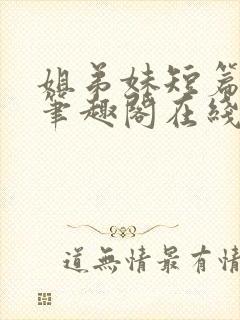 姐弟妹短篇
筆趣閣在綫
道無情最有情